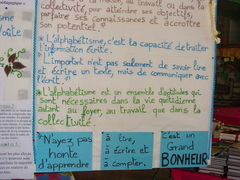 au travail ou dans la
collectivité, pour atteindre ses objectifs,
parfaire ses connaissances et accroître
son potentiel !
L'alphabétisme, c'est la capacité de traiter
l'information écrite.
L'important n'est pas seulement de savoir lire
et écrire un texte, mais de communiquer avec
l'écrit !
L'alphabétisme est un ensemble d'aptitudes qui
sont nécessaires dans la vie quotidienne
autant au foyer, au travail que dans la
collectivité.
N'ayez pas
honte
d'apprendre
à lire,
à écrire et
à compter,
c'est un
Grand
BONHEUR